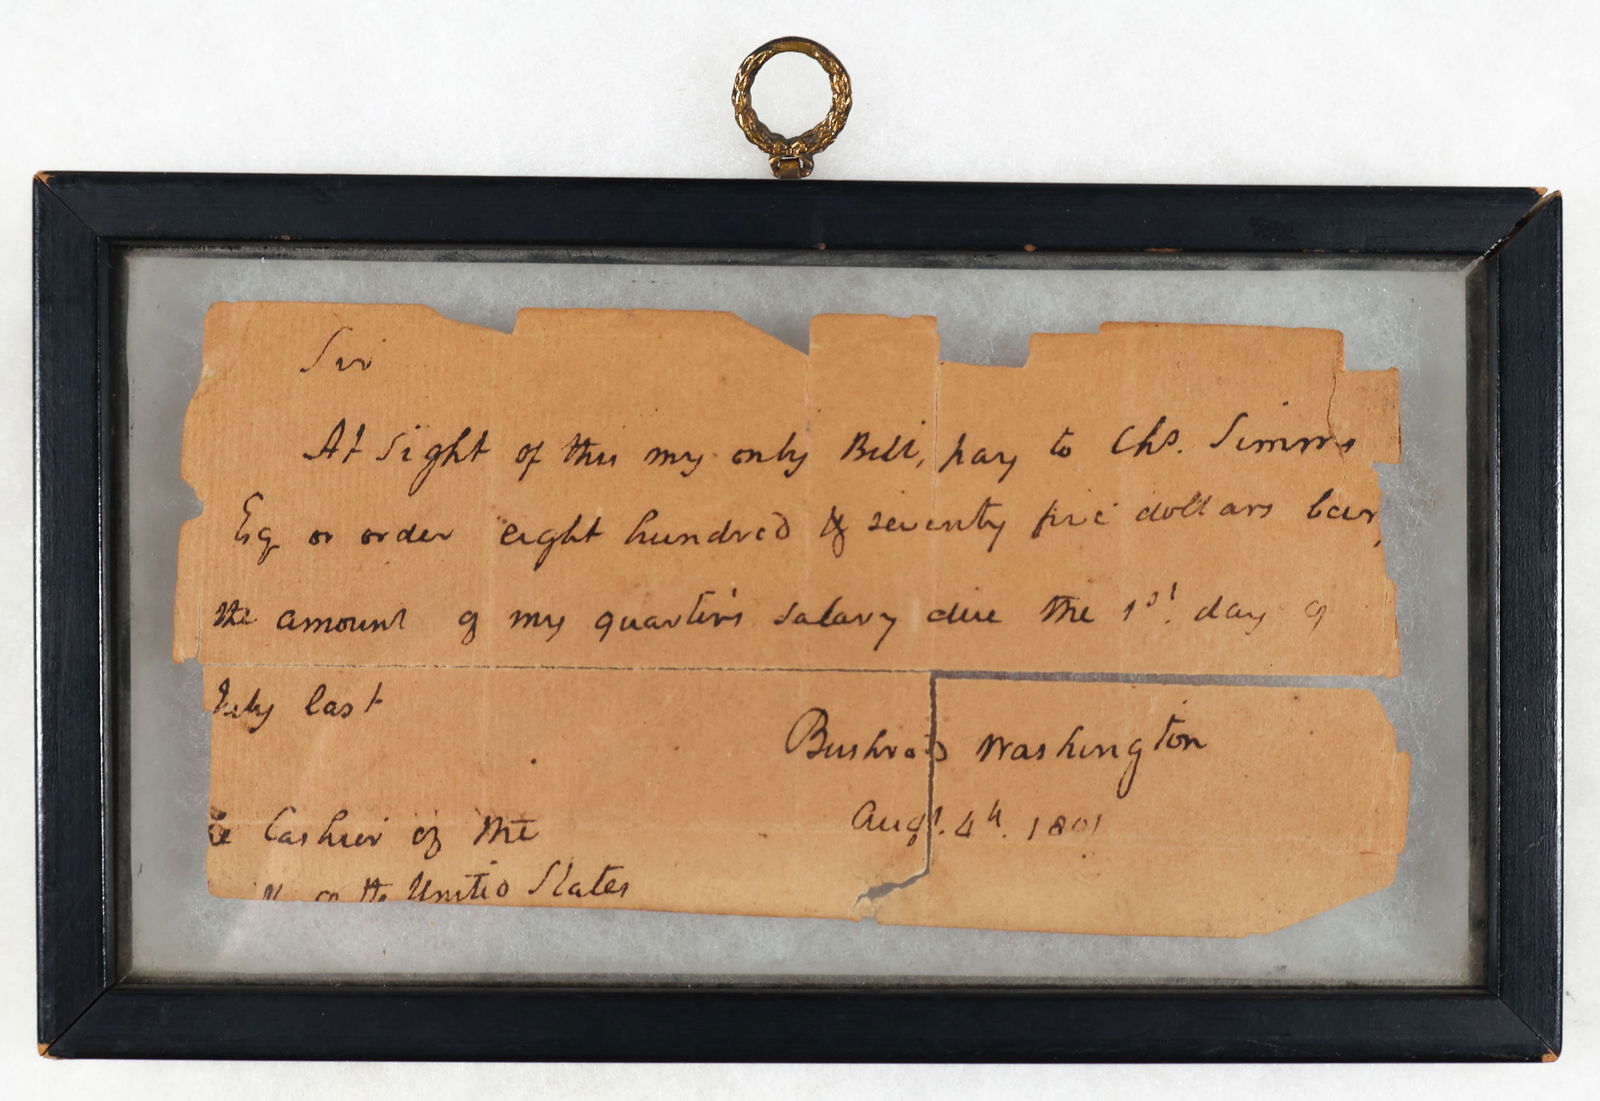 Sir
At Sight of this my only Bill, pay to Chs. Simms
Esq or order eight hundred & seventy five dollars
the amount of my quarter's salary due the 1st. day of
July last
Bushrod Washington
Augt. 4th. 1801
Cashier of the
the United States